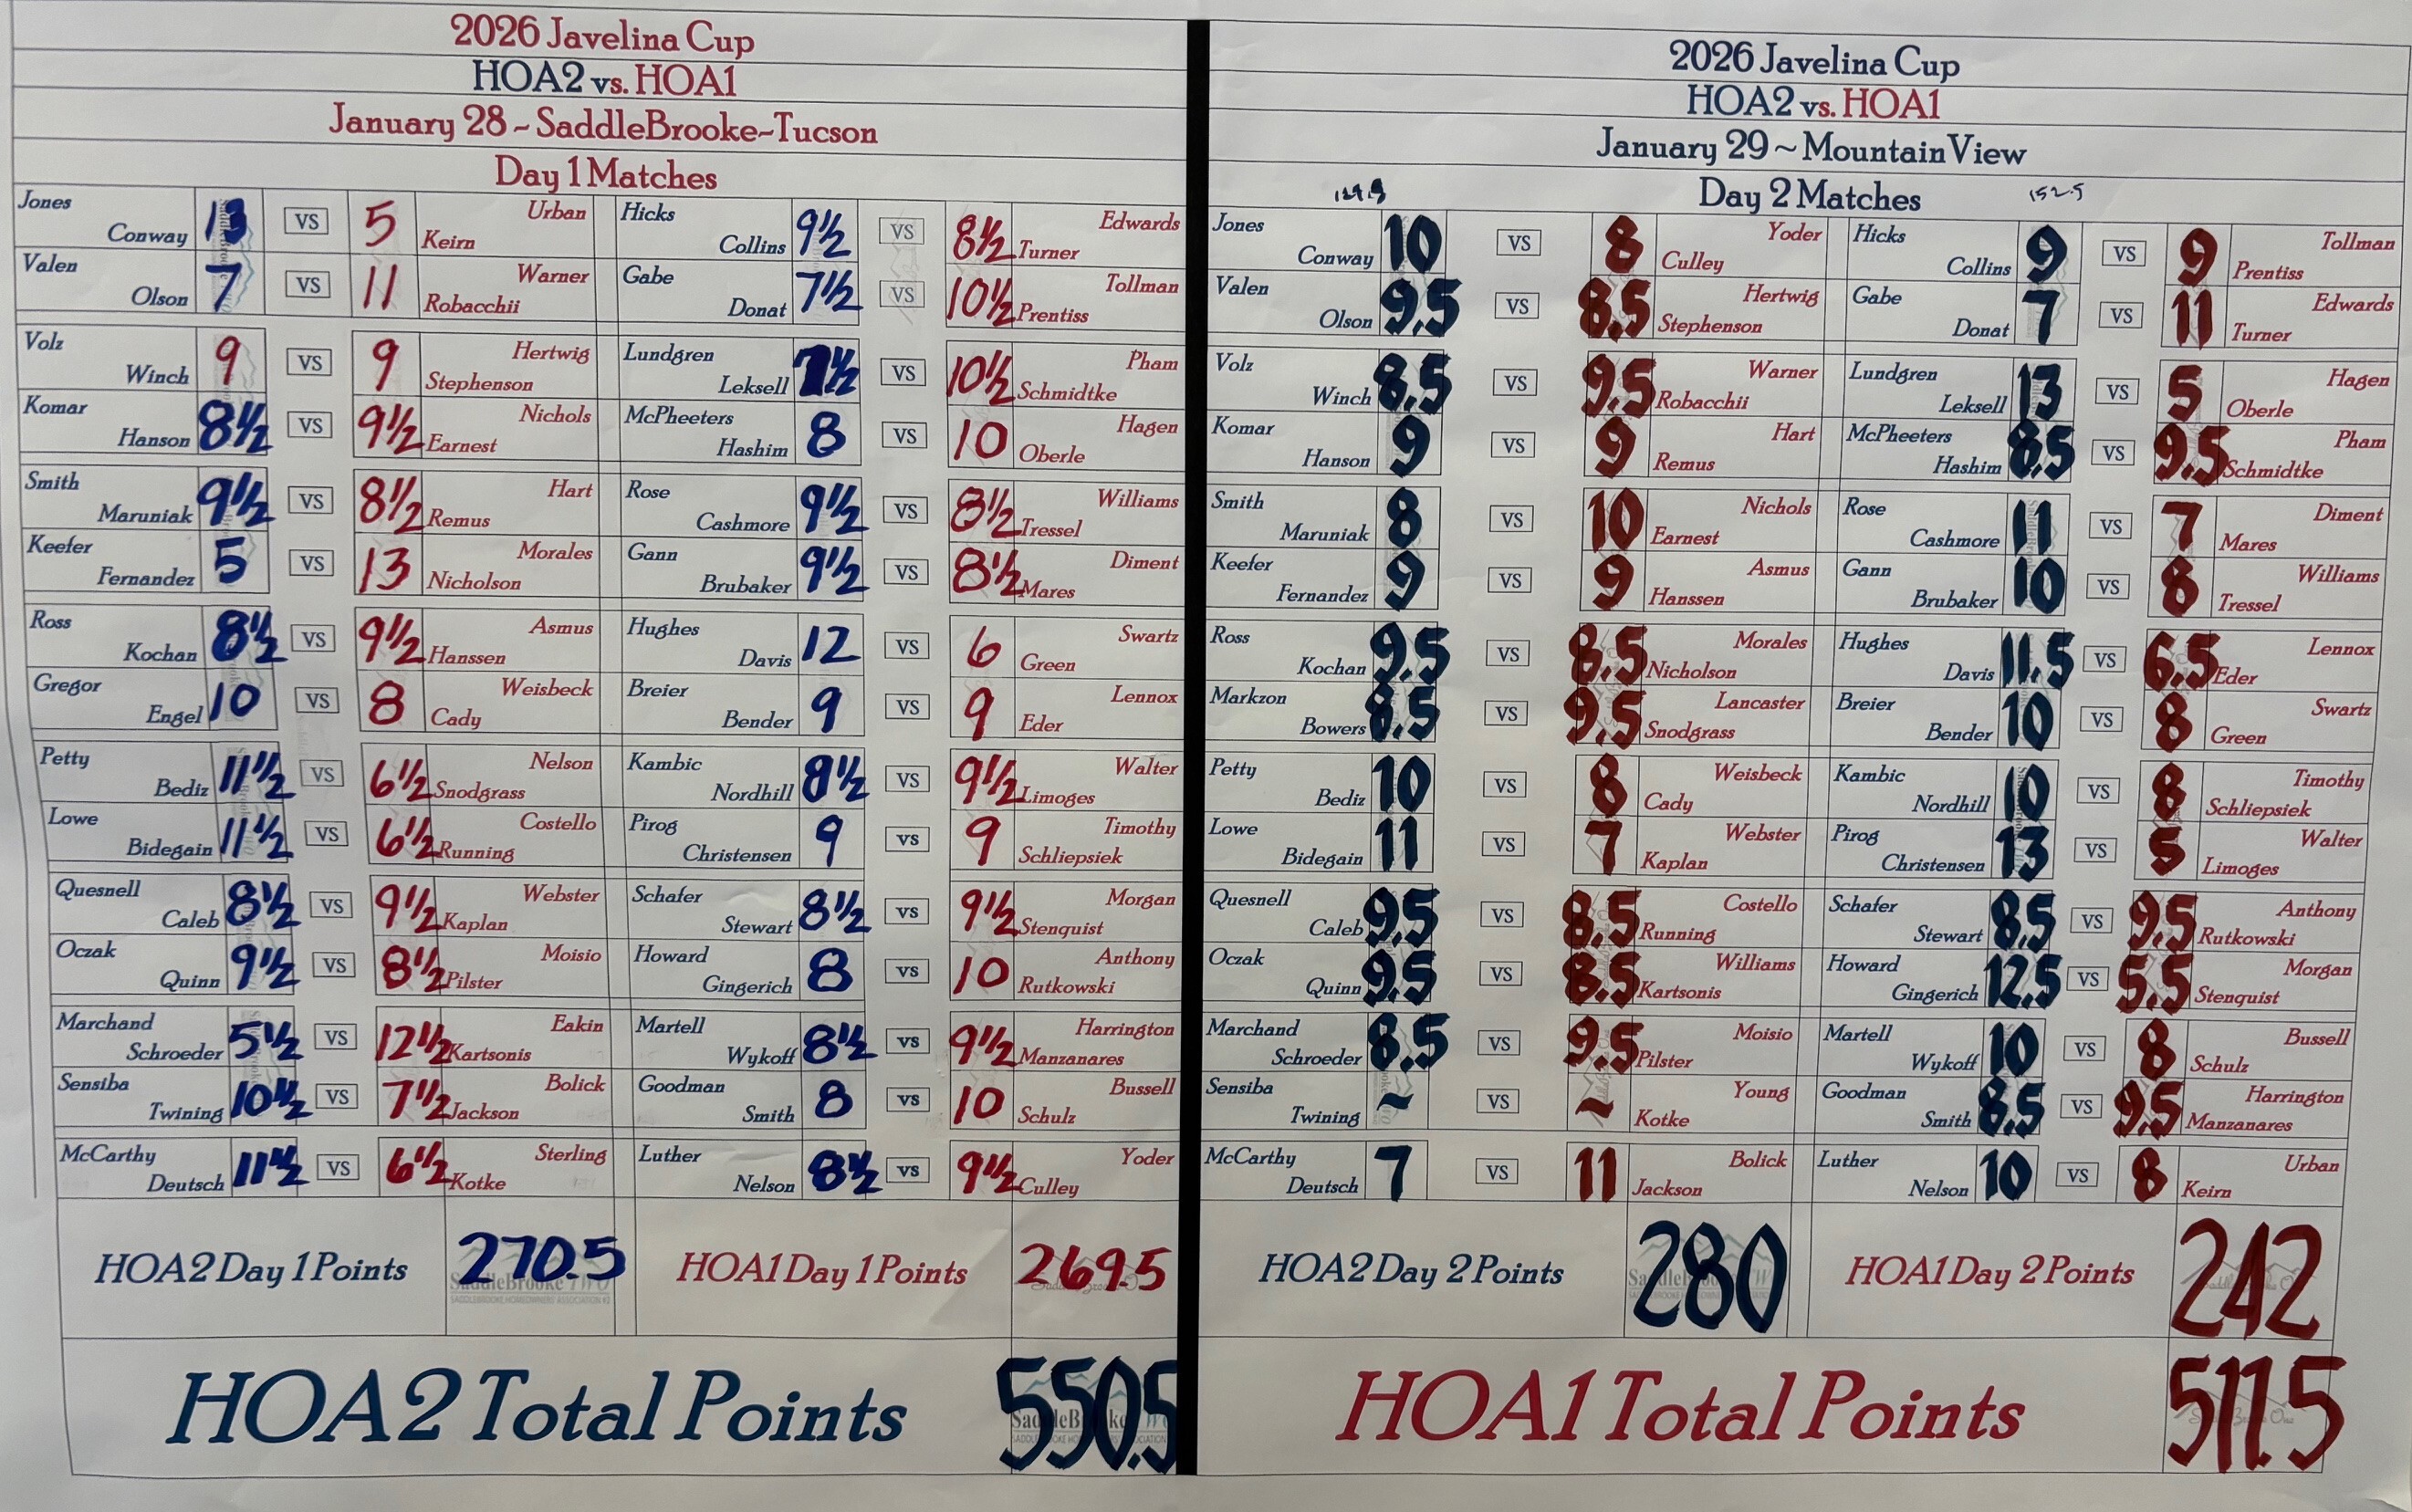 2026 Javelina Cup
HOA2 vs. HOA1
January 28 ~ SaddleBrooke~Tucson
Day 1 Matches
Jones Conway 13 VS 5 Urban Keirn Hicks Collins 9½ VS 8½ Edwards Turner
Valen Olson 7 VS 11 Warner Robacchii Gabe Donat 7½ VS 10½ Tollman Prentiss
Volz Winch 9 VS 9 Hertwig Stephenson Lundgren Leksell 7½ VS 10½ Pham Schmidtke
Komar Hanson 8½ VS 9½ Nichols Earnest McPheeters Hashim 8 VS 10 Hagen Oberle
Smith Maruniak 9½ VS 8½ Hart Remus Rose Cashmore 9½ VS 8½ Williams Tressel
Keefer Fernandez 5 VS 13 Morales Nicholson Gann Brubaker 9½ VS 8½ Diment Mares
Ross Kochan 8½ VS 9½ Asmus Hanssen Hughes Davis 12 VS 6 Swartz Green
Gregor Engel 10 VS 8 Weisbeck Cady Breier Bender 9 VS 9 Lennox Eder
Petty Bediz 11½ VS 6½ Nelson Snodgrass Kambic Nordhill 8½ VS 9½ Walter Limoges
Lowe Bidegain 11½ VS 6½ Costello Running Pirog Christensen 9 vs 9 Timothy Schliepsiek
Quesnell Caleb 8½ VS 9½ Webster Kaplan Schafer Stewart 8½ vs 9½ Morgan Stenquist
Oczak Quinn 9½ VS 8½ Moisio Pilster Howard Gingerich 8 vs 10 Anthony Rutkowski
Marchand Schroeder 5½ VS 12½ Eakin Kartsonis Martell Wykoff 8½ vs 9½ Harrington Manzanares
Sensiba Twining 10½ VS 7½ Bolick Jackson Goodman Smith 8 vs 10 Bussell Schulz
McCarthy Deutsch 11½ VS 6½ Sterling Kotke Luther Nelson 8½ vs 9½ Yoder Culley
HOA2 Day 1 Points 270.5 HOA1 Day 1 Points 269.5
HOA2 Total Points 550.5
2026 Javelina Cup
HOA2 vs. HOA1
January 29 ~ Mountain View
Day 2 Matches 152.5
Jones Conway 10 VS 8 Yoder Culley Hicks Collins 9 VS 9 Tollman Prentiss
Valen Olson 9.5 VS 8.5 Hertwig Stephenson Gabe Donat 7 VS 11 Edwards Turner
Volz Winch 8.5 VS 9.5 Warner Robacchii Lundgren Leksell 13 VS 5 Hagen Oberle
Komar Hanson 9 VS 9 Hart Remus McPheeters Hashim 8.5 VS 9.5 Pham Schmidtke
Smith Maruniak 8 VS 10 Nichols Earnest Rose Cashmore 11 VS 7 Diment Mares
Keefer Fernandez 9 VS 9 Asmus Hanssen Gann Brubaker 10 VS 8 Williams Tressel
Ross Kochan 9.5 VS 8.5 Morales Nicholson Hughes Davis 11.5 VS 6.5 Lennox Eder
Markzon Bowers 8.5 VS 9.5 Lancaster Snodgrass Breier Bender 10 VS 8 Swartz Green
Petty Bediz 10 VS 8 Weisbeck Cady Kambic Nordhill 10 VS 8 Timothy Schliepsiek
Lowe Bidegain 11 VS 7 Webster Kaplan Pirog Christensen 13 VS 5 Walter Limoges
Quesnell Caleb 9.5 VS 8.5 Costello Running Schafer Stewart 8.5 VS 9.5 Anthony Rutkowski
Oczak Quinn 9.5 VS 8.5 Williams Kartsonis Howard Gingerich 12.5 VS 5.5 Morgan Stenquist
Marchand Schroeder 8.5 VS 9.5 Moisio Pilster Martell Wykoff 10 VS 8 Bussell Schulz
Sensiba Twining ~ VS ~ Young Kotke Goodman Smith 8.5 VS 9.5 Harrington Manzanares
McCarthy Deutsch 7 VS 11 Bolick Jackson Luther Nelson 10 VS 8 Urban Keirn
HOA2 Day 2 Points 280 HOA1 Day 2 Points 242
HOA1 Total Points 511.5